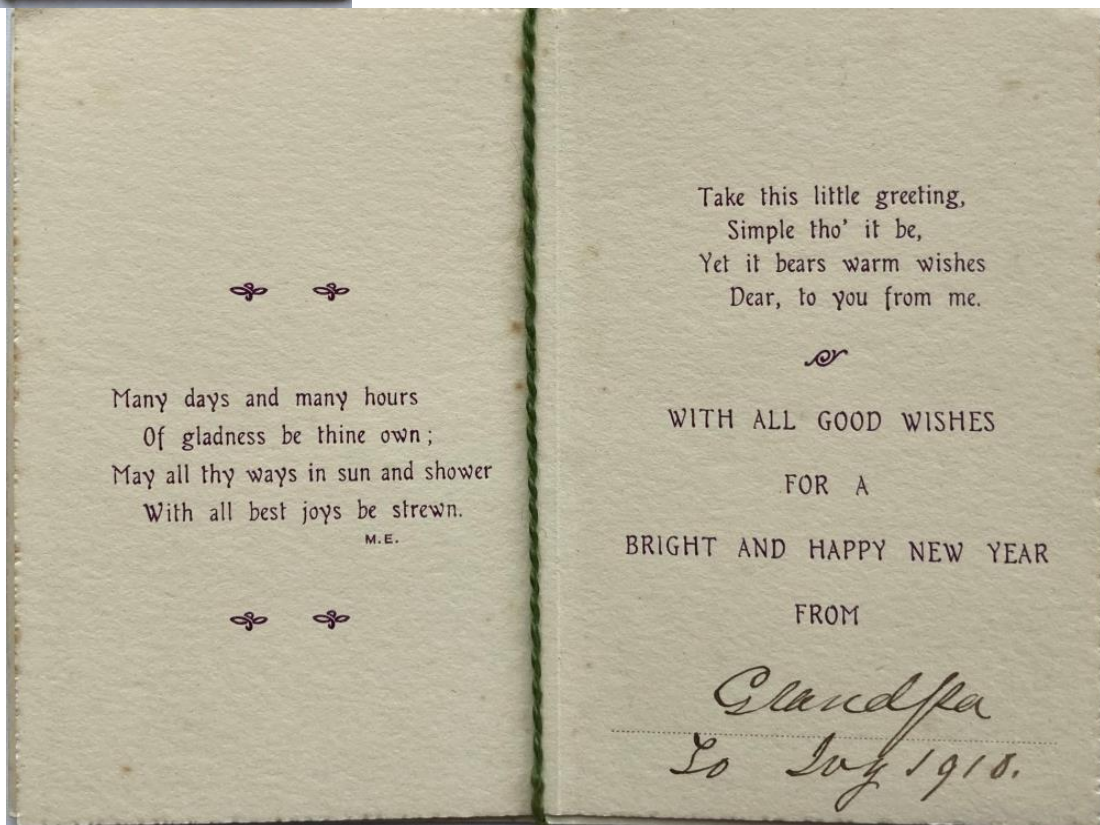 Many days and many hours
Of gladness be thine own;
May all thy ways in sun and shower
With all best joys be strewn.
M.E.
Take this little greeting,
Simple tho' it be,
Yet it bears warm wishes
Dear, to you from me.
WITH ALL GOOD WISHES
FOR A
BRIGHT AND HAPPY NEW YEAR
FROM
Grandpa
To Ivy 1910.